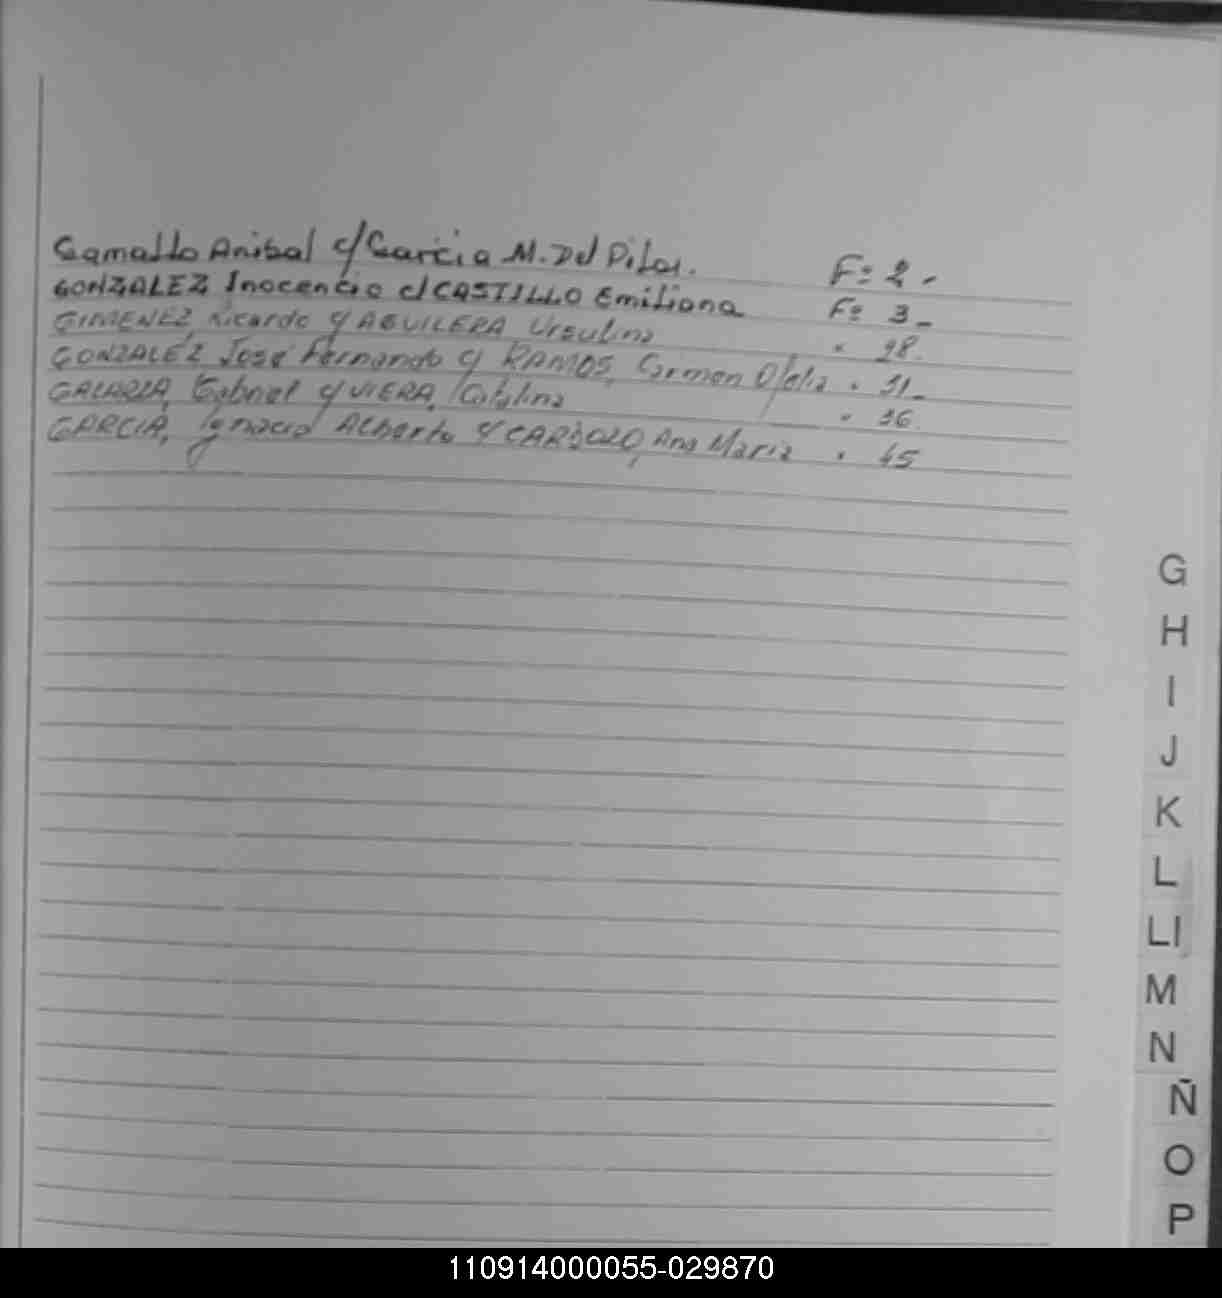 Gamallo Anibal c/ Garcia M. Del Pilar. Fº 2 -
GONZALEZ Inocencio c/ CASTILLO Emiliana Fº 3 -
GIMENEZ, Ricardo c/ AGUILERA Ursulina " 28.
GONZALEZ José Fernando c/ RAMOS, Carmen Ofelia " 31 -
GALARZA, Gabriel c/ VIERA, Catalina " 36.
GARCIA, Ignacio Alberto c/ CARDOZO, Ana Maria " 45
G
H
I
J
K
L
Ll
M
N
Ñ
O
P
110914000055-029870